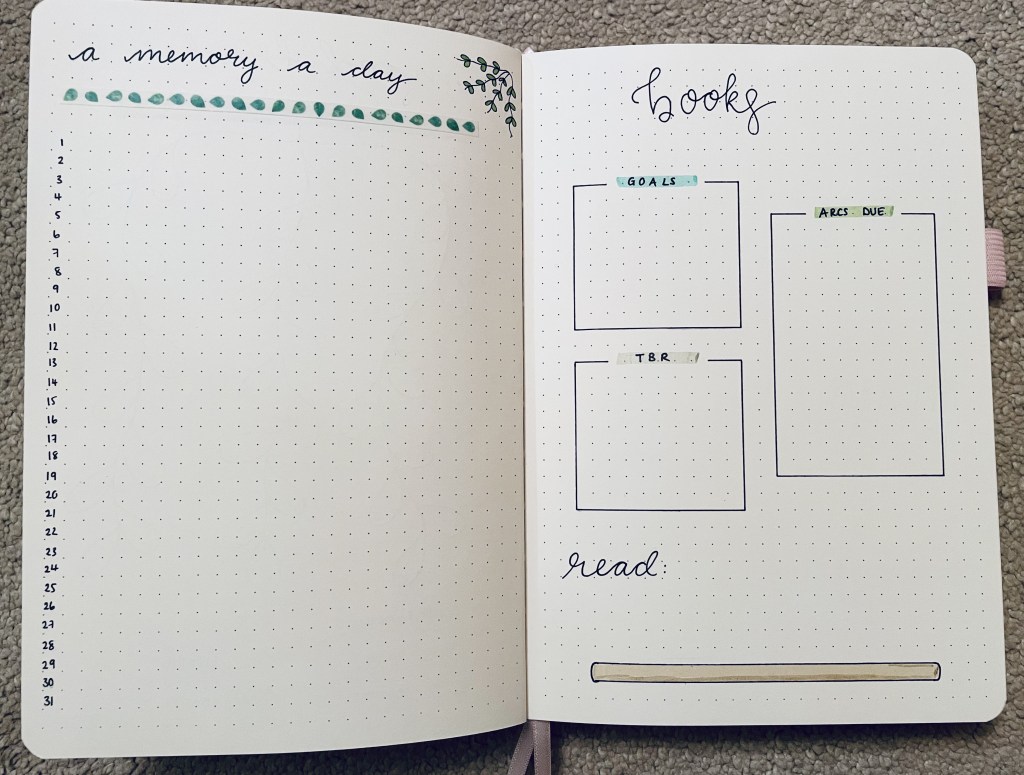 a memory a day
1
2
3
4
5
6
7
8
9
10
11
12
13
14
15
16
17
18
19
20
21
22
23
24
25
26
27
28
29
30
31
books
GOALS
ARCS DUE
TBR
read: